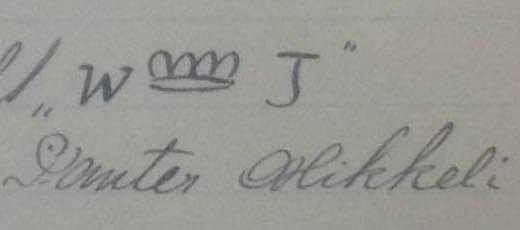 „W J"
Panter Mikkeli